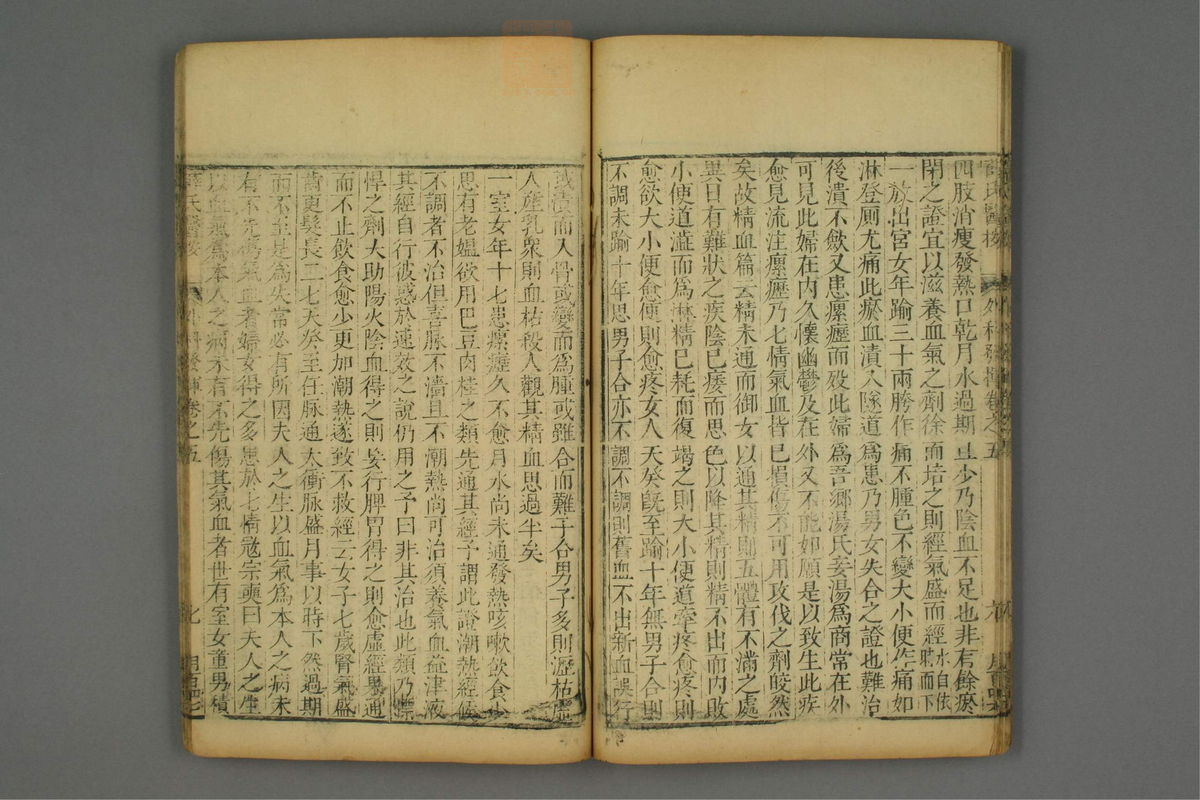 薛氏醫按 外科發揮卷之五
四肢消瘦發熱口乾月水過期且少乃陰血不足也非有餘瘀
閉之證宜以滋養血氣之劑徐而培之則經氣盛而經水自依時而下
一放出宮女年踰三十兩胯作痛不腫色不變大小便作痛如
淋登厠尤痛此瘀血漬入隧道爲患乃男女失合之證也難治
後潰不斂又患瘰癧而殁此婦爲吾鄉湯氏妾湯爲商常在外
可見此婦在內久懷幽鬱及在外又不能如願是以致生此疾
愈見流注瘰癧乃七情氣血皆已損傷不可用攻伐之劑皎然
矣故精血篇云精未通而御女以通其精則五體有不滿之處
異日有難狀之疾陰已痿而思色以降其精則精不出而內敗
小便道澁而爲淋精已耗而復竭之則大小便道牽疼愈疼則
愈欲大小便愈便則愈疼女人天癸旣至踰十年無男子合則
不調未踰十年思男子合亦不調不調則舊血不出新血誤行
或漬而入骨或變而爲腫或雖合而難子合男子多則瀝枯虛
人產乳衆則血枯殺人觀其精血思過半矣
一室女年十七患瘰癧久不愈月水尚未通發熱咳嗽飲食少
思有老媼欲用巴豆肉桂之類先通其經予謂此證潮熱經候
不調者不治但喜脉不濇且不潮熱尚可治須養氣血益津液
其經自行彼惑於速效之說仍用之予曰非其治也此類乃慓
悍之劑大助陽火陰血得之則妄行脾胃得之則愈虛經果通
而不止飲食愈少更加潮熱遂致不救經云女子七歲腎氣盛
齒更髮長二七天癸至任脉通太衝脉盛月事以時下然過期
而不至是爲失常必有所因夫人之生以血氣爲本人之病未
有不先傷氣血者婦女得之多患於七情宼宗奭曰夫人之生
以血氣爲本人之病未有不先傷其氣血者世有室女童男積
薛氏醫按 外科發揮卷之五